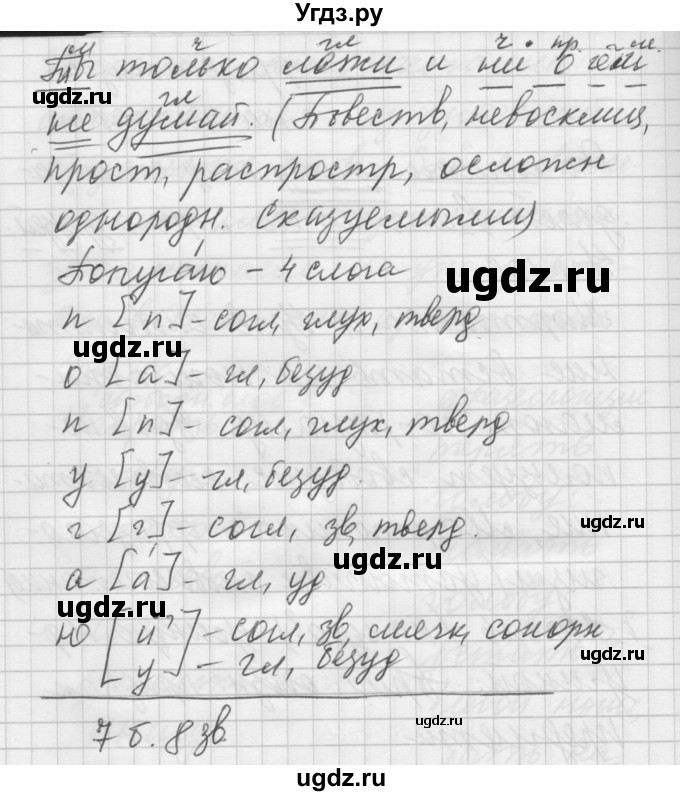 Угдз.ру
ч гл ч. пр. м.
Ты только ложи и ни о чём
гл
не думай. (Повеств, невосклиц,
прост, распростр, осложн
однородн. сказуемыми)
Попуга́ю - 4 слога
п [п] - согл, глух, тверд
о [а] - гл, безуд
п [п] - согл, глух, тверд
у [у] - гл, безуд.
г [г] - согл, зв, тверд.
а [а́] - гл, уд
ю [й'] - согл, зв, мягк, сонорн
[у] - гл, безуд
7 б. 8 зв
ugdz.ru
ugdz.ru
ugdz.ru
ugdz.ru
ugdz.ru
ugdz.ru
ugdz.ru
ugdz.ru
ugdz.ru
ugdz.ru